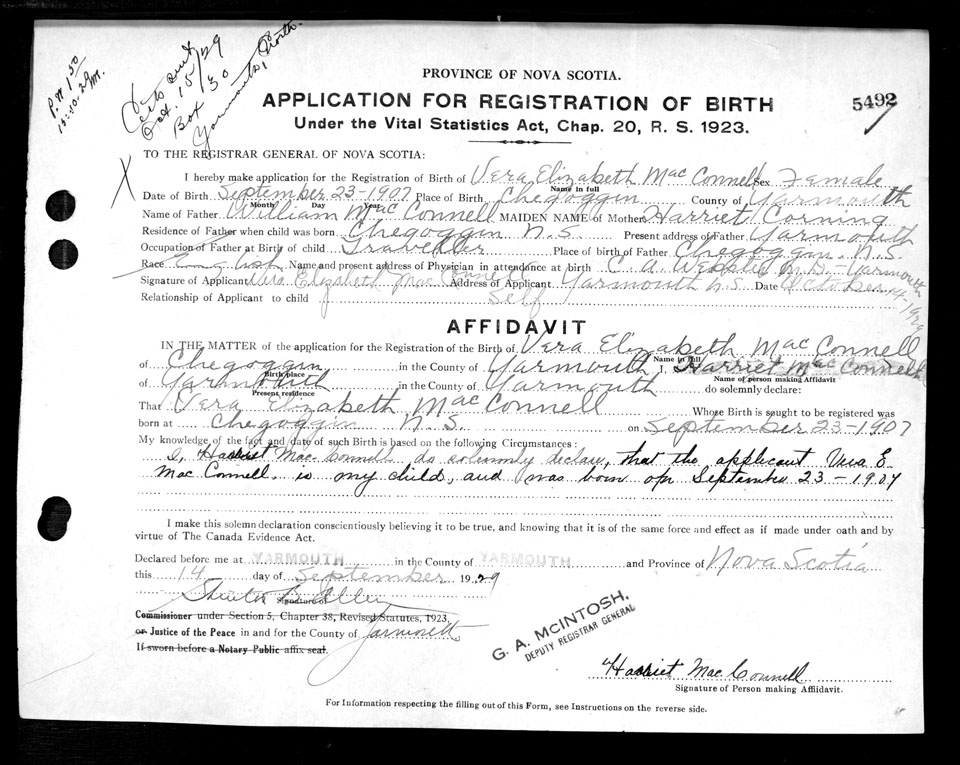 P.N 1.50
10-10-29 M.
Certs sent
Oct. 15/29
Box 30
Yarmouth, North.
PROVINCE OF NOVA SCOTIA.
APPLICATION FOR REGISTRATION OF BIRTH
5492
Under the Vital Statistics Act, Chap. 20, R. S. 1923.
X TO THE REGISTRAR GENERAL OF NOVA SCOTIA:
I hereby make application for the Registration of Birth of Vera Elizabeth Mac Connell Sex Female
Name in full
Date of Birth September 23-1907 Place of Birth Chegoggin County of Yarmouth
Month Day Year
Name of Father William Mac Connell MAIDEN NAME of Mother Harriet Corning
Residence of Father when child was born Chegoggin N.S. Present address of Father Yarmouth
Occupation of Father at Birth of child Traveller Place of birth of Father Chegoggin. N.S.
Race English Name and present address of Physician in attendance at birth C. A. Webster M.D. Yarmouth
Signature of Applicant Vera Elizabeth Mac Connell Address of Applicant Yarmouth N.S. Date October 14-1929
Relationship of Applicant to child Self
AFFIDAVIT
IN THE MATTER of the application for the Registration of the Birth of Vera Elizabeth Mac Connell
Name in full
of Chegoggin in the County of Yarmouth I, Harriet Mac Connell
Birth place Name of person making Affidavit
of Yarmouth in the County of Yarmouth do solemnly declare:
Present residence
That Vera Elizabeth Mac Connell Whose Birth is sought to be registered was
born at Chegoggin N.S. on September 23-1907
My knowledge of the fact and date of such Birth is based on the following Circumstances:
I, Harriet Mac Connell do solemnly declare, that the applicant Vera E.
Mac Connell, is my child, and was born on September 23-1907
I make this solemn declaration conscientiously believing it to be true, and knowing that it is of the same force and effect as if made under oath and by
virtue of The Canada Evidence Act.
Declared before me at YARMOUTH in the County of YARMOUTH and Province of Nova Scotia
this 14 day of September 1929
Signature of
Commissioner under Section 5, Chapter 38, Revised Statutes, 1923,
or Justice of the Peace in and for the County of Yarmouth
If sworn before a Notary Public affix seal.
G. A. McINTOSH,
DEPUTY REGISTRAR GENERAL
Harriet Mac Connell
Signature of Person making Affidavit.
For Information respecting the filling out of this Form, see Instructions on the reverse side.